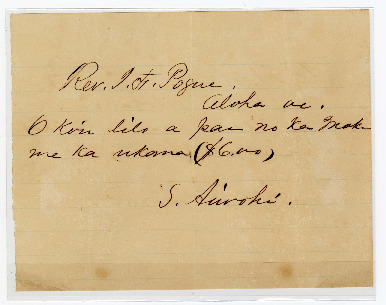 Rev. J. F. Pogue.
Aloha oe.
O kou lilo a pau no ka Mak
me ka ukana ($6.00)
S. Aiwohi.